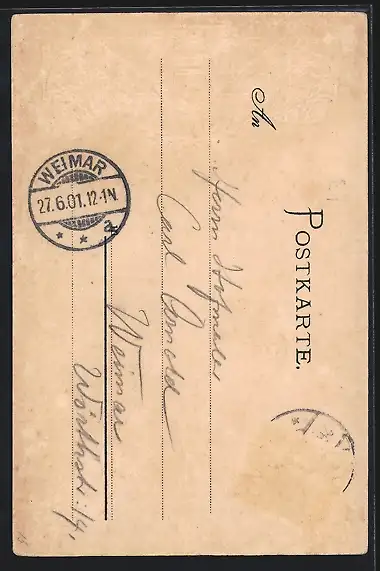 POSTKARTE.
An
Herrn Hofmaler
Carl Arnold
Weimar
Wörthstr: 14,
WEIMAR
27.6.01.12-1N.
* * a